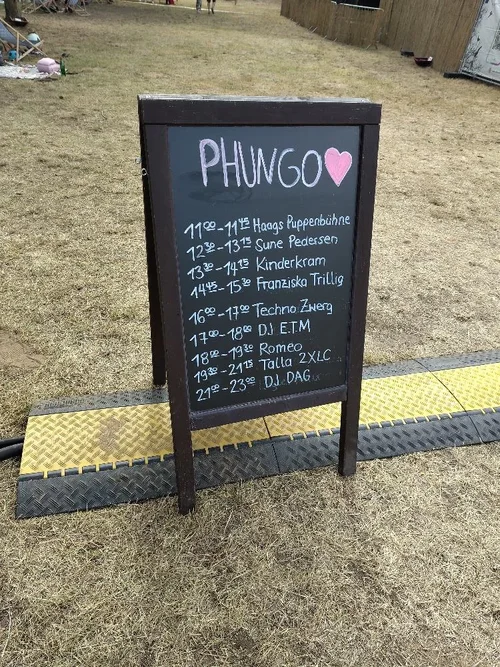 PHUNGO
11⁰⁰-11⁴⁵ Haags Puppenbühne
12³⁰-13¹⁵ Sune Pedersen
13³⁰-14¹⁵ Kinderkram
14⁴⁵-15³⁰ Franziska Trillig
16⁰⁰-17⁰⁰ Techno Zwerg
17⁰⁰-18⁰⁰ DJ E.T.M
18⁰⁰-19³⁰ Romeo
19³⁰-21¹⁵ Talla 2XLC
21⁰⁰-23⁰⁰ DJ DAG